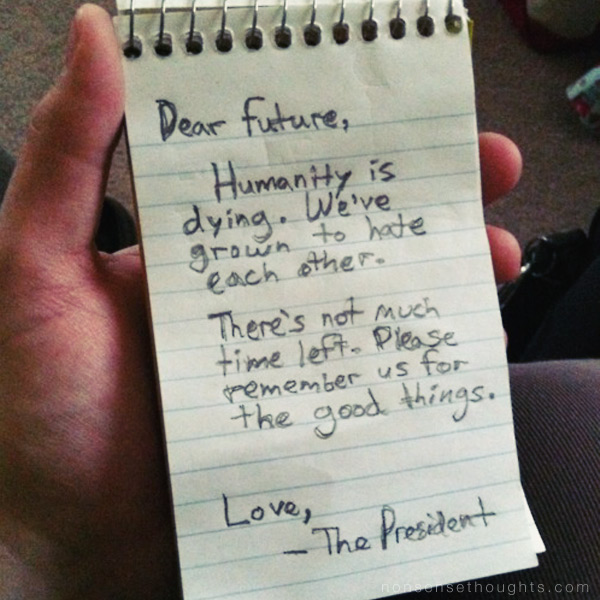 Dear future,
Humanity is
dying. We've
grown to hate
each other.
There's not much
time left. Please
remember us for
the good things.
Love,
- The President
nonsensethoughts.com